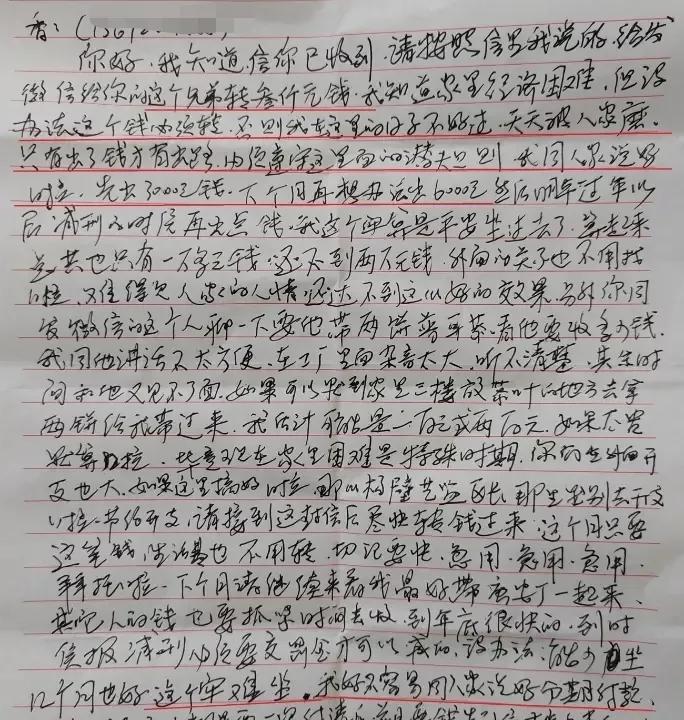 香：(1561
你好，我知道信你已收到，请按照信里我说的，给发
微信给你的这个兄弟转叁仟元钱，我知道家里经济困难，但没
办法这个钱必须转，否则我在这里的日子不好过，天天被人家磨。
只有出了钱才有出路，必须遵守这里面的潜大规则 我同人家说好
啦，先出3000元钱，下个月再想办法出6000元 然后明年过年以
后减刑的时候再出点钱，我这个牢算是平安坐过去了，算起来
总共也只有一万多元钱，还不到两万元钱，外面的关子也不用找
啦，又难得见人家的人情，还达不到这么好的效果，另外你同
发微信的这个人聊一下要他带两饼普洱茶，看他要收多少钱，
我同他讲话不太方便，在工厂里面杂音太大，听不清楚，其余时
间和他又见不了面，如果可以就到家里三楼放茶叶的地方去拿
两饼给我带过来，我估计可能是一百元或两百元，如果太贵
就算啦，毕竟现在家里困难是特殊时期，你的生活开
支也大，如果这里搞好啦，那么
啦，节约开支，请接到这封信后尽快转钱过来，这个月只要
这笔钱，生活费也不用转，切记要快，急用，急用，急用，
拜托啦，下个月请继续来看我，最好带 一起来，
其他人的钱也要抓紧时间去收，到年底很快的，到时
侯报减刑必须要交罚金才可以减的，没办法，能少坐
几个月也好 这个牢又难坐。我好不容易同人家说好分期付款，